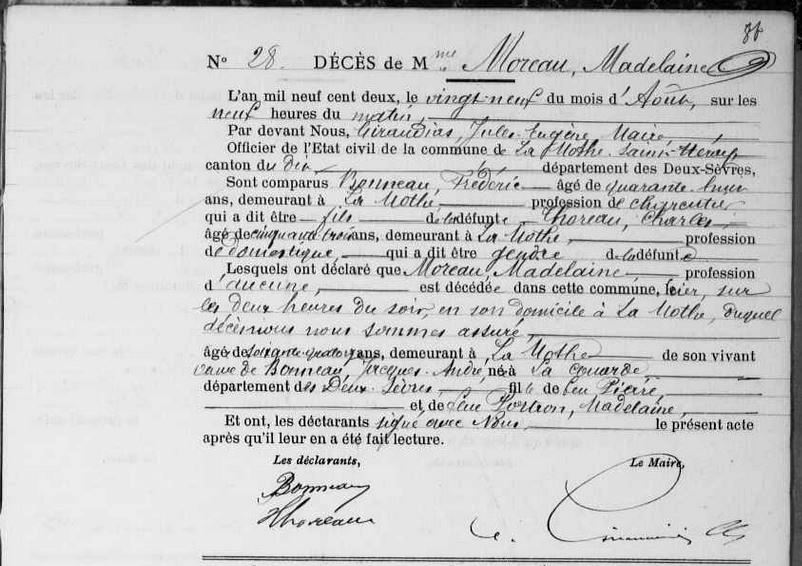 86
N° 28. DÉCÈS de Mme Moreau, Madelaine
L'an mil neuf cent deux, le vingt-neuf du mois d'Août, sur les
neuf heures du matin,
Par devant Nous, Giraudias, Jules Eugène, Maire,
Officier de l'Etat civil de la commune de La Mothe-Saint-Héray
canton du dit, département des Deux-Sèvres,
Sont comparus Bonneau, Frédéric âgé de quarante huit
ans, demeurant à La Mothe profession de charcutier
qui a dit être fils de la défunte, Thoreau, Charles,
âgé de cinquante trois ans, demeurant à La Mothe, profession
de domestique, qui a dit être gendre de la défunte
Lesquels ont déclaré que Moreau Madelaine profession
d'aucune, est décédée dans cette commune, hier, sur
les deux heures du soir, en son domicile à La Mothe, duquel
décès nous nous sommes assuré,
âgé de soixante-quatorze ans, demeurant à La Mothe de son vivant
veuve de Bonneau, Jacques André, né à La Couarde
département des Deux-Sèvres, fille de feu Pierre,
et de feue Madelaine,
Et ont, les déclarants signé avec Nous le présent acte
après qu'il leur en a été fait lecture.
Les déclarants, Le Maire,
Bonneau
Thoreau